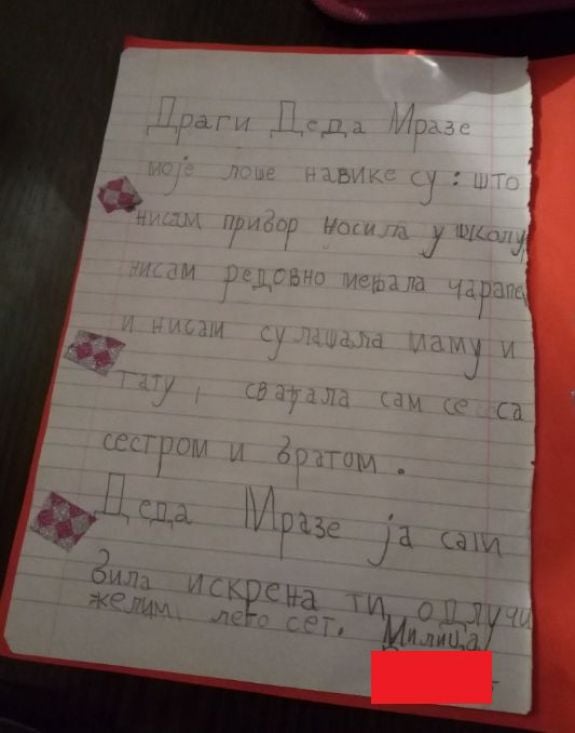 Драги Деда Мразе
моје лоше навике су: што
нисам прибор носила у школу,
нисам редовно мењала чарапе
и нисам сулашала маму и
тату, свађала сам се са
сестром и братом.
Деда Мразе ја сам
била искрена ти одлучи
желим лего сет. Милица